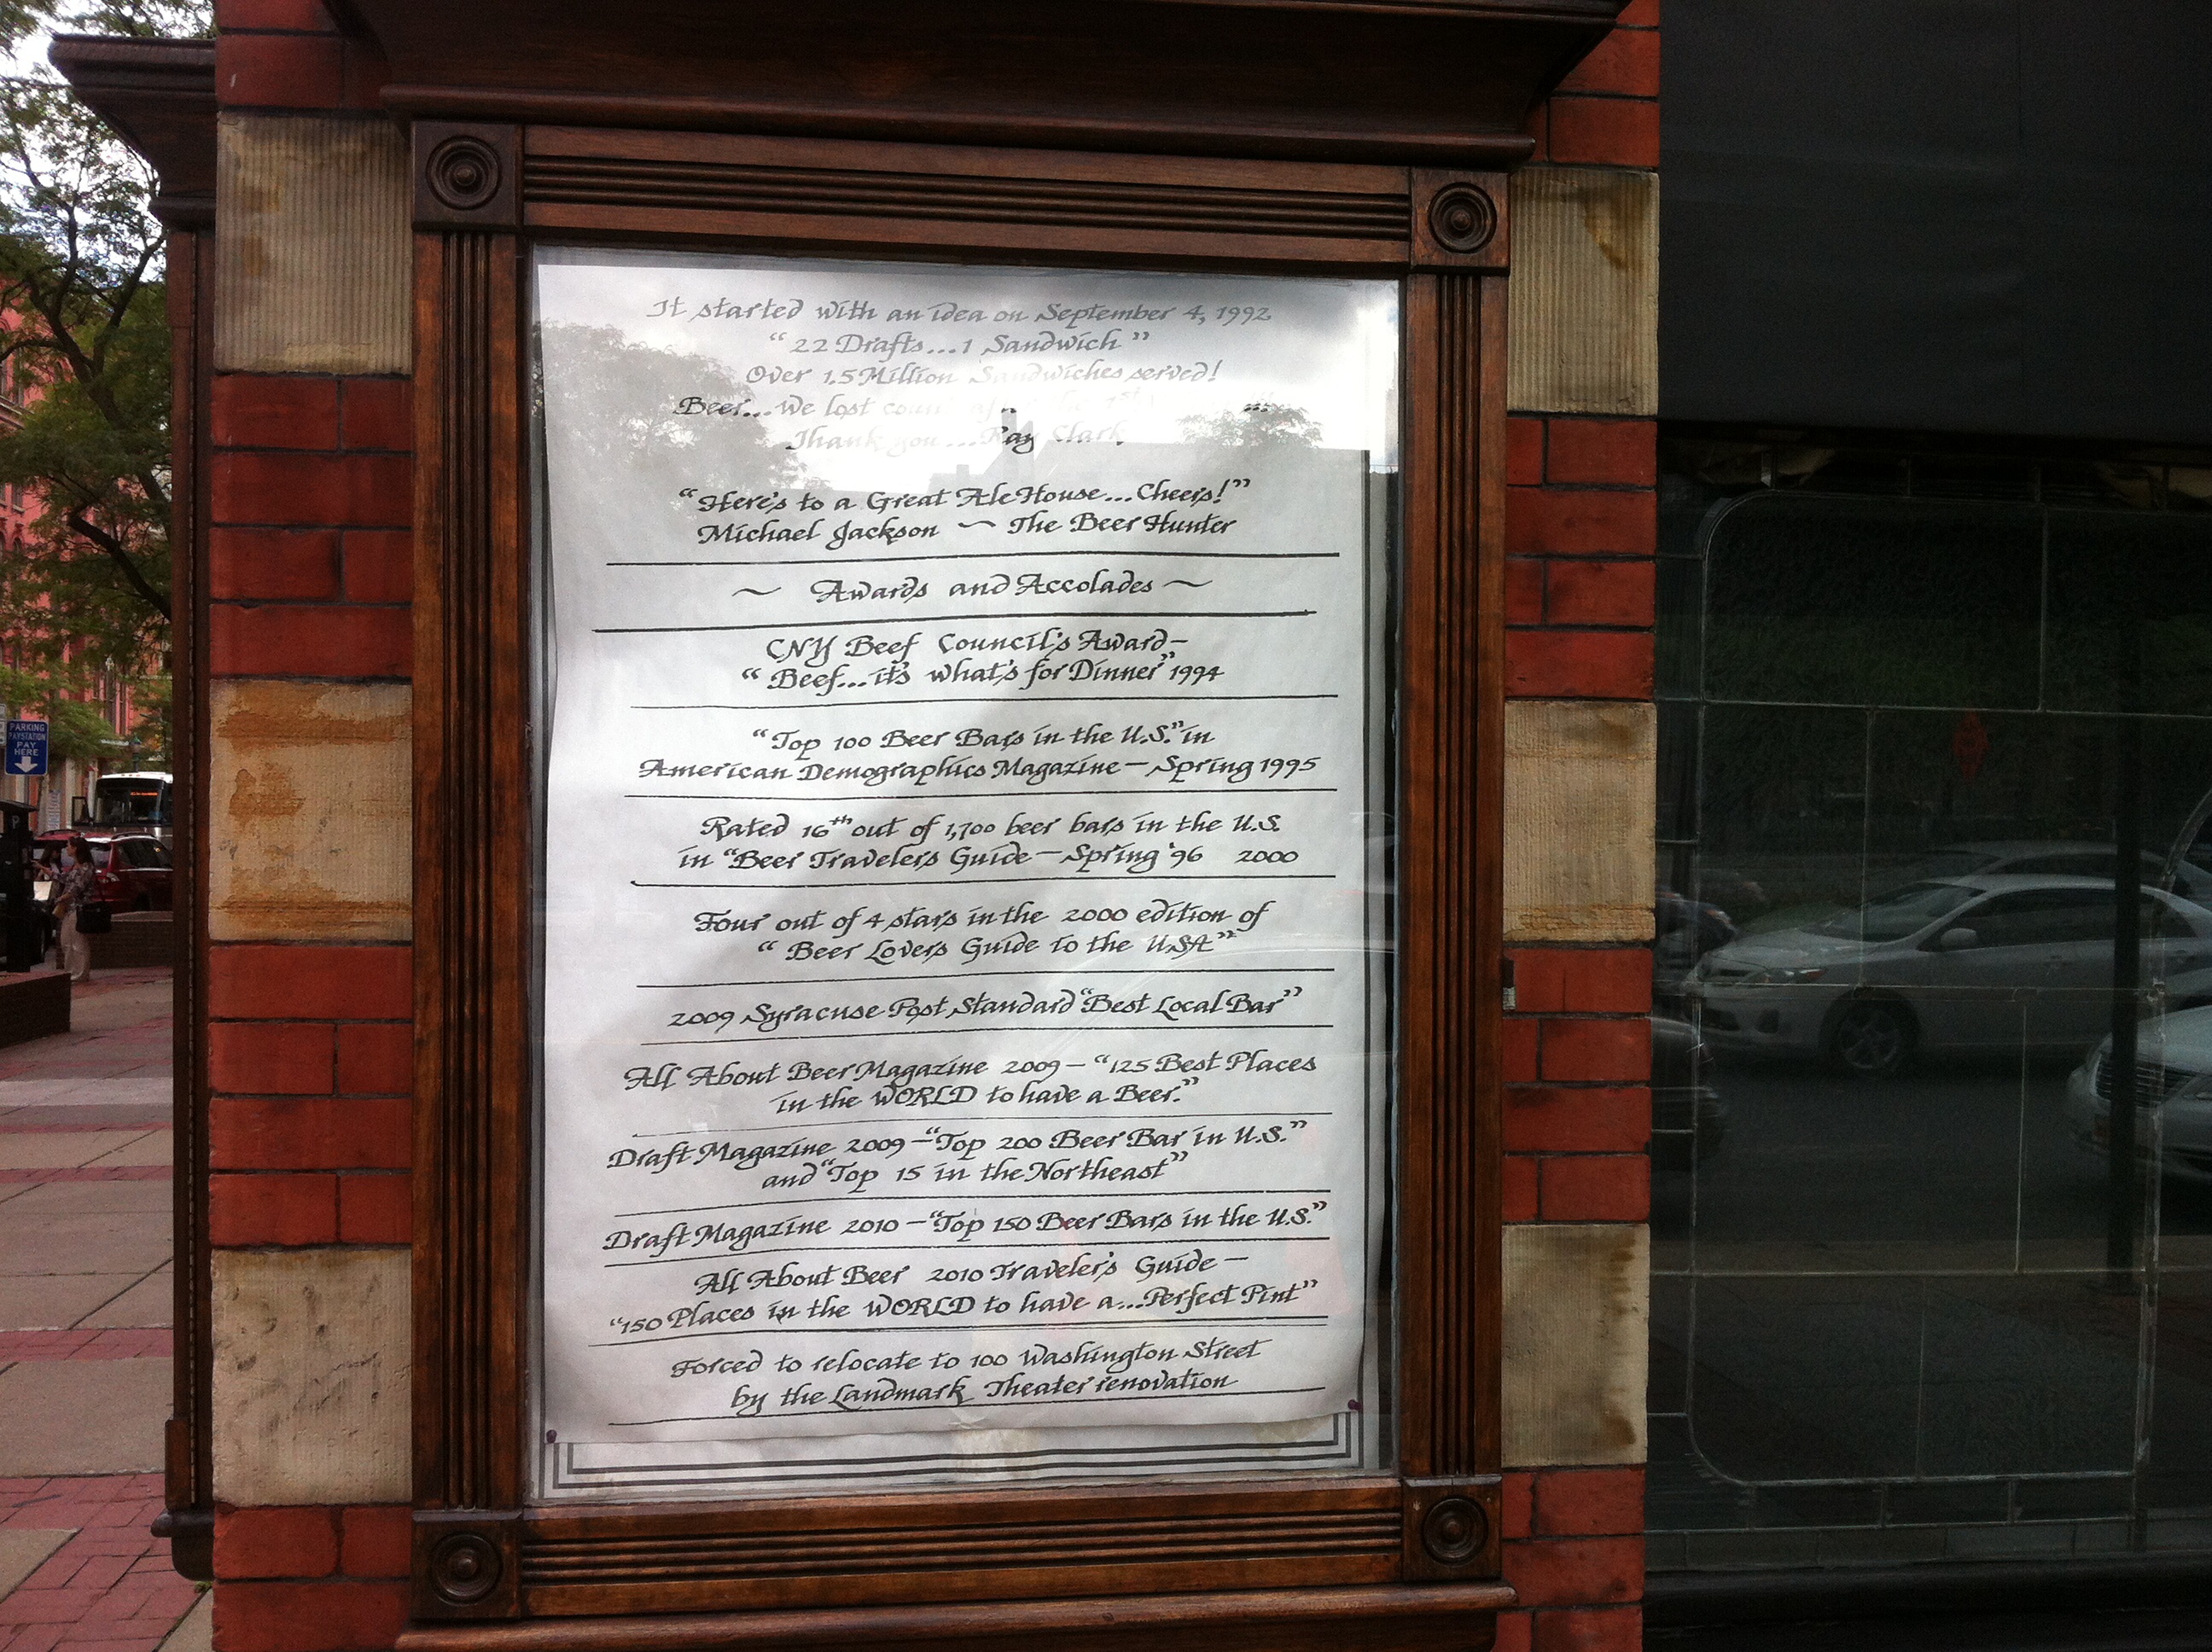 It started with an idea on September 4, 1992
"22 Drafts...1 Sandwich"
Over 1.5 Million Sandwiches served!
Beer...we lost count
Thank you...Ray Clark
"Here's to a Great Ale House...Cheers!"
Michael Jackson ~ The Beer Hunter
~ Awards and Accolades ~
CNY Beef Council's Award-
"Beef...it's what's for Dinner" 1994
"Top 100 Beer Bars in the U.S." in
American Demographics Magazine - Spring 1995
Rated 16th out of 1,700 beer bars in the U.S.
in "Beer Travelers Guide - Spring '96 2000
Four out of 4 stars in the 2000 edition of
"Beer Lovers Guide to the USA"
2009 Syracuse Post Standard "Best Local Bar"
All About Beer Magazine 2009 - "125 Best Places
in the WORLD to have a Beer."
Draft Magazine 2009 - "Top 200 Beer Bar in U.S."
and "Top 15 in the Northeast"
Draft Magazine 2010 - "Top 150 Beer Bars in the U.S."
All About Beer 2010 Traveler's Guide -
"150 Places in the WORLD to have a...Perfect Pint"
Forced to relocate to 100 Washington Street
by the Landmark Theater renovation
PARKING
PAYSTATION
PAY
HERE
P